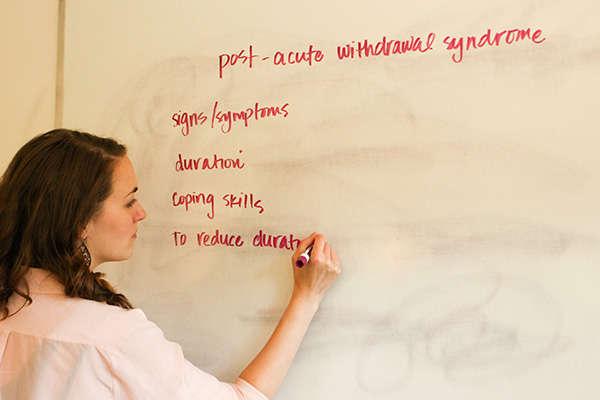 post-acute withdrawal syndrome
signs/symptoms
duration
coping skills
To reduce durat